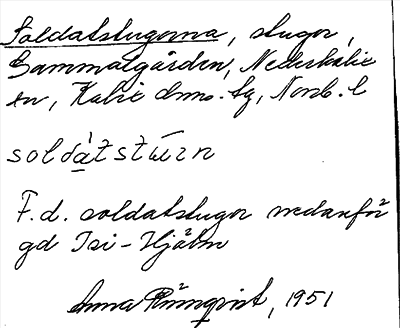 Soldatstugorna, stugor,
Gammalgården, Nederkalix
tn, Kalix dnms. tg, Norrb. l
soldàtstúɛrn
F.d. soldatstugor nedanför
gd Isi-Hjälm
Anna Rönnqvist, 1951